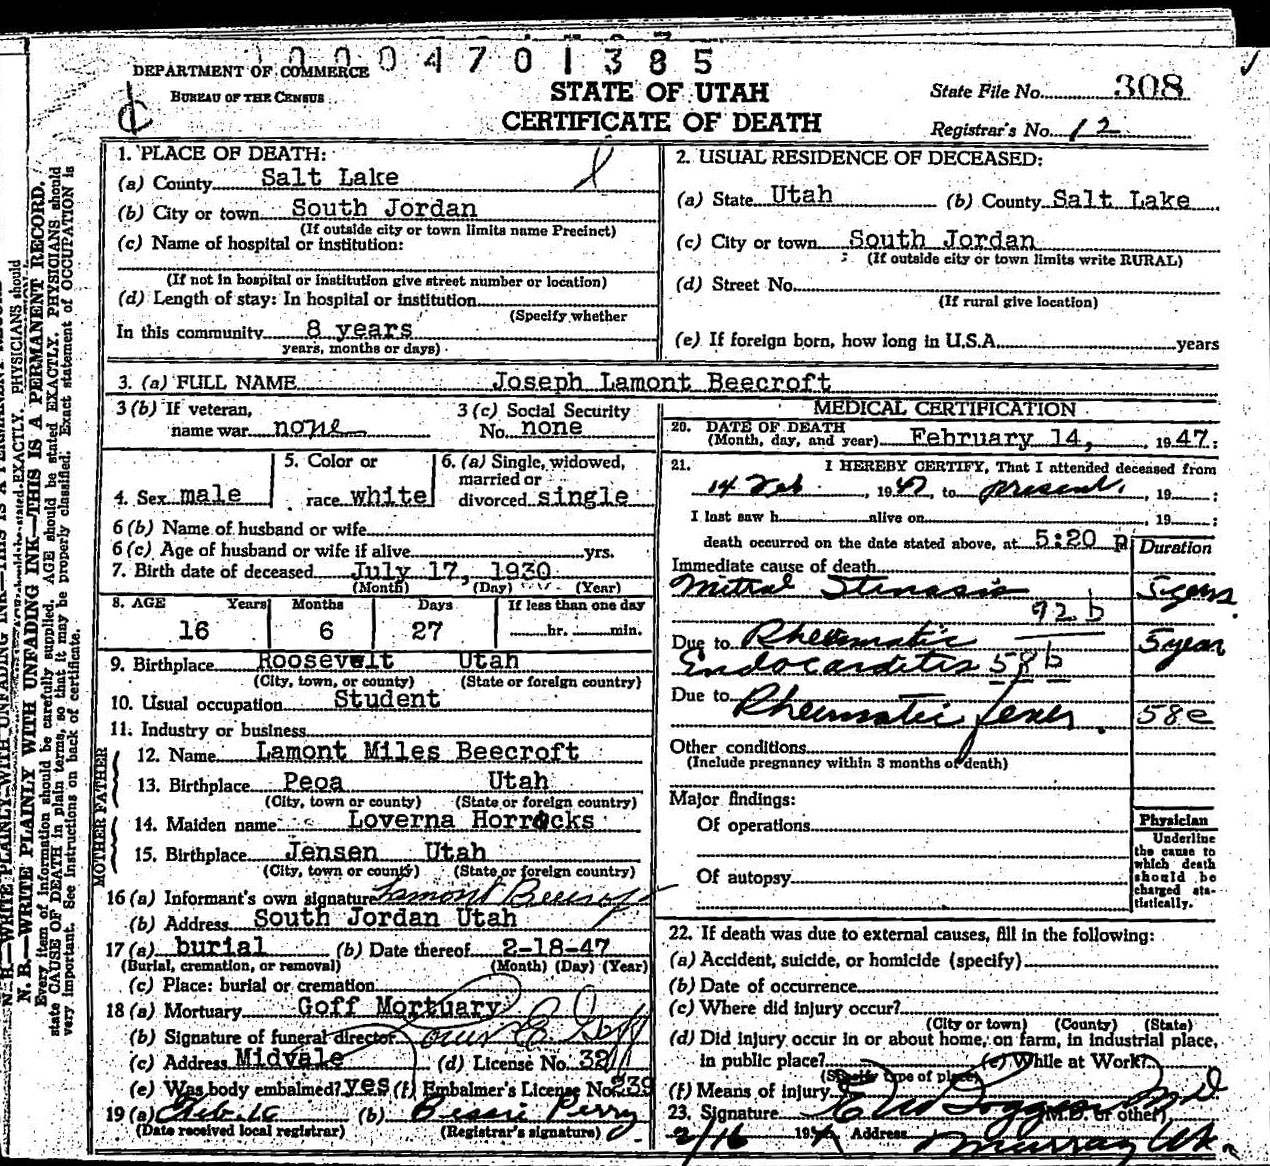 10004701385
DEPARTMENT OF COMMERCE
BUREAU OF THE CENSUS
STATE OF UTAH
CERTIFICATE OF DEATH
State File No. 308
Registrar's No. 12
1. PLACE OF DEATH:
(a) County Salt Lake
(b) City or town South Jordan
(If outside city or town limits name Precinct)
(c) Name of hospital or institution:
(If not in hospital or institution give street number or location)
(d) Length of stay: In hospital or institution
(Specify whether
In this community 8 years
years, months or days)
2. USUAL RESIDENCE OF DECEASED:
(a) State Utah (b) County Salt Lake
(c) City or town South Jordan
(If outside city or town limits write RURAL)
(d) Street No.
(If rural give location)
(e) If foreign born, how long in U.S.A. years
3. (a) FULL NAME Joseph Lamont Beecroft
3 (b) If veteran,
name war none
3 (c) Social Security
No. none
4. Sex male
5. Color or
race white
6. (a) Single, widowed,
married or
divorced single
6 (b) Name of husband or wife
6 (c) Age of husband or wife if alive yrs.
7. Birth date of deceased July 17, 1930
(Month) (Day) (Year)
8. AGE Years Months Days If less than one day
16 6 27 hr. min.
9. Birthplace Roosevelt Utah
(City, town, or county) (State or foreign country)
10. Usual occupation Student
11. Industry or business
FATHER
12. Name Lamont Miles Beecroft
13. Birthplace Peoa Utah
(City, town or county) (State or foreign country)
MOTHER
14. Maiden name Loverna Horrocks
15. Birthplace Jensen Utah
(City, town or county) (State or foreign country)
16 (a) Informant's own signature Lamont Beecroft
(b) Address South Jordan Utah
17 (a) burial (b) Date thereof 2-18-47
(Burial, cremation, or removal) (Month) (Day) (Year)
(c) Place: burial or cremation
18 (a) Mortuary Goff Mortuary
(b) Signature of funeral director
(c) Address Midvale (d) License No. 32
(e) Was body embalmed? yes (f) Embalmer's License No. 239
19 (a) Feb 16 (b) Bessie Perry
(Date received local registrar) (Registrar's signature)
MEDICAL CERTIFICATION
20. DATE OF DEATH
(Month, day, and year) February 14, 1947:
21. I HEREBY CERTIFY, That I attended deceased from
14 Feb, 1947, to present, 19 ;
I last saw h alive on , 19 ;
death occurred on the date stated above, at 5:20 p
Duration
Immediate cause of death
Mitral Stenosis 5 years
92b
Due to Rheumatic 5 year
Endocarditis 58b
Due to Rheumatic fever. 58e
Other conditions
(Include pregnancy within 3 months of death)
Major findings:
Of operations
Of autopsy
Physician
Underline
the cause to
which death
should be
charged sta-
tistically.
22. If death was due to external causes, fill in the following:
(a) Accident, suicide, or homicide (specify)
(b) Date of occurrence
(c) Where did injury occur?
(City or town) (County) (State)
(d) Did injury occur in or about home, on farm, in industrial place,
in public place? (e) While at Work?
(Specify type of place)
(f) Means of injury
23. Signature (M.D. or other)
2/16 1947 Address Murray Ut.
N. B.—WRITE PLAINLY WITH UNFADING INK—THIS IS A PERMANENT RECORD.
Every item of information should be carefully supplied. AGE should be stated EXACTLY. PHYSICIANS should
state CAUSE OF DEATH in plain terms, so that it may be properly classified. Exact statement of OCCUPATION is
very important. See instructions on back of certificate.